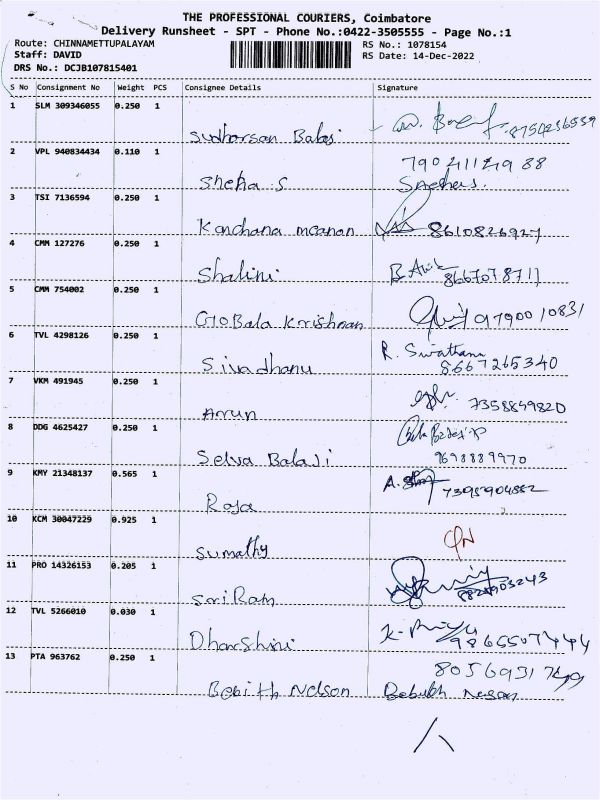 THE PROFESSIONAL COURIERS, Coimbatore
Delivery Runsheet - SPT - Phone No.:0422-3505555 - Page No.:1
Route: CHINNAMETTUPALAYAM
Staff: DAVID
DRS No.: DCJB107815401
RS No.: 1078154
RS Date: 14-Dec-2022
S No Consignment No Weight PCS Consignee Details Signature
1 SLM 309346055 0.250 1
Sudharsan Balaji 8750236539
2 VPL 940834434 0.110 1
Sneha S
3 TSI 7136594 0.250 1
Kanchana 8610826927
4 CMM 127276 0.250 1
Shalini 8667078711
5 CMM 754002 0.250 1
Bala Krishnan 9790010831
6 TVL 4298126 0.250 1
Sivadhanu R. 8667265340
7 VKM 491945 0.250 1
Arrun 7358849820
8 DDG 4625427 0.250 1
Selva Balaji 9698889970
9 KMY 21348137 0.565 1
Raja A. 7395904882
10 KCM 30047229 0.925 1
Sumathy
11 PRO 14326153 0.205 1
Sri Ram
12 TVL 5266010 0.030 1
Dharshini
13 PTA 963762 0.250 1
Nelson